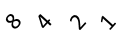 8 4 2 1